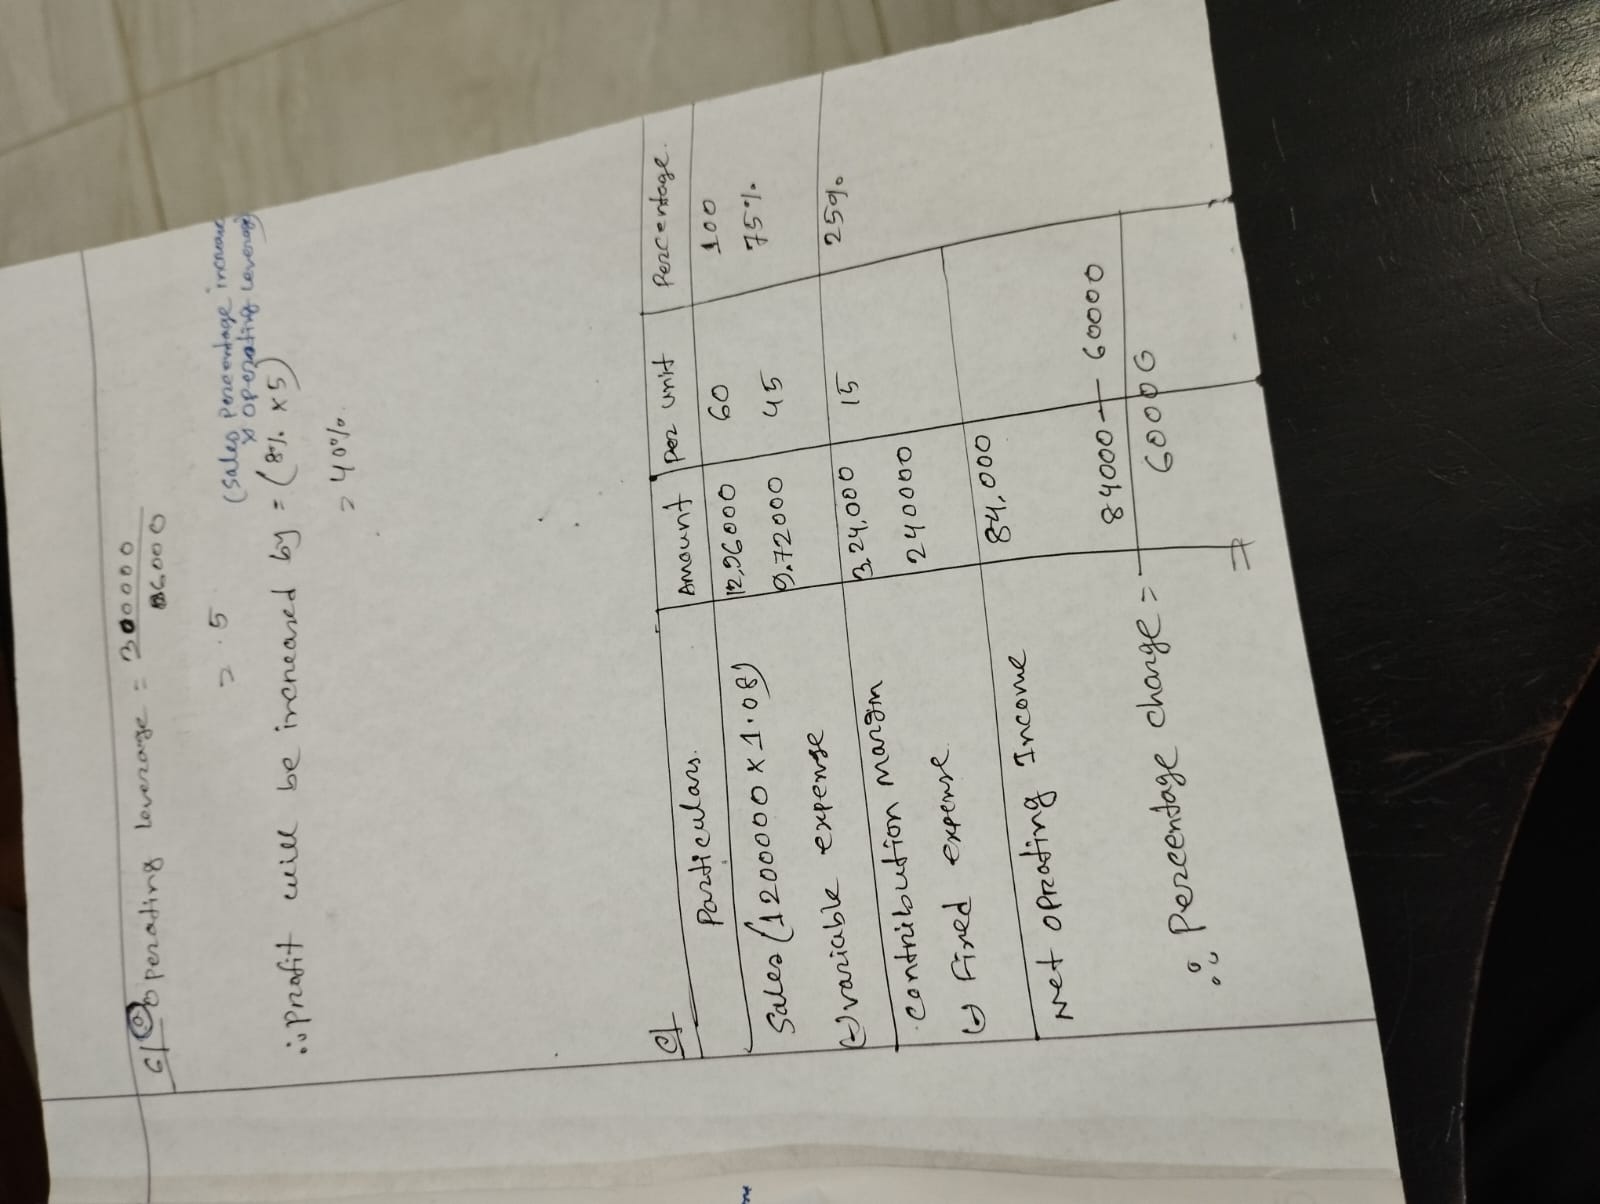 c) Operating Leverage = 300000
60000
= 5
(Sales percentage increase
x operating leverage)
∴ Profit will be increased by = (8% x 5)
= 40%
e)
Particulars. Amount per unit Percentage.
Sales (1200000 x 1.08) 12,96000 60 100
(-) variable expense 9,72000 45 75%
Contribution margin 3,24,000 15 25%
(-) Fixed expense 240000
Net oprating Income 84,000
∴ Percentage change = 84000 - 60000
60000
=